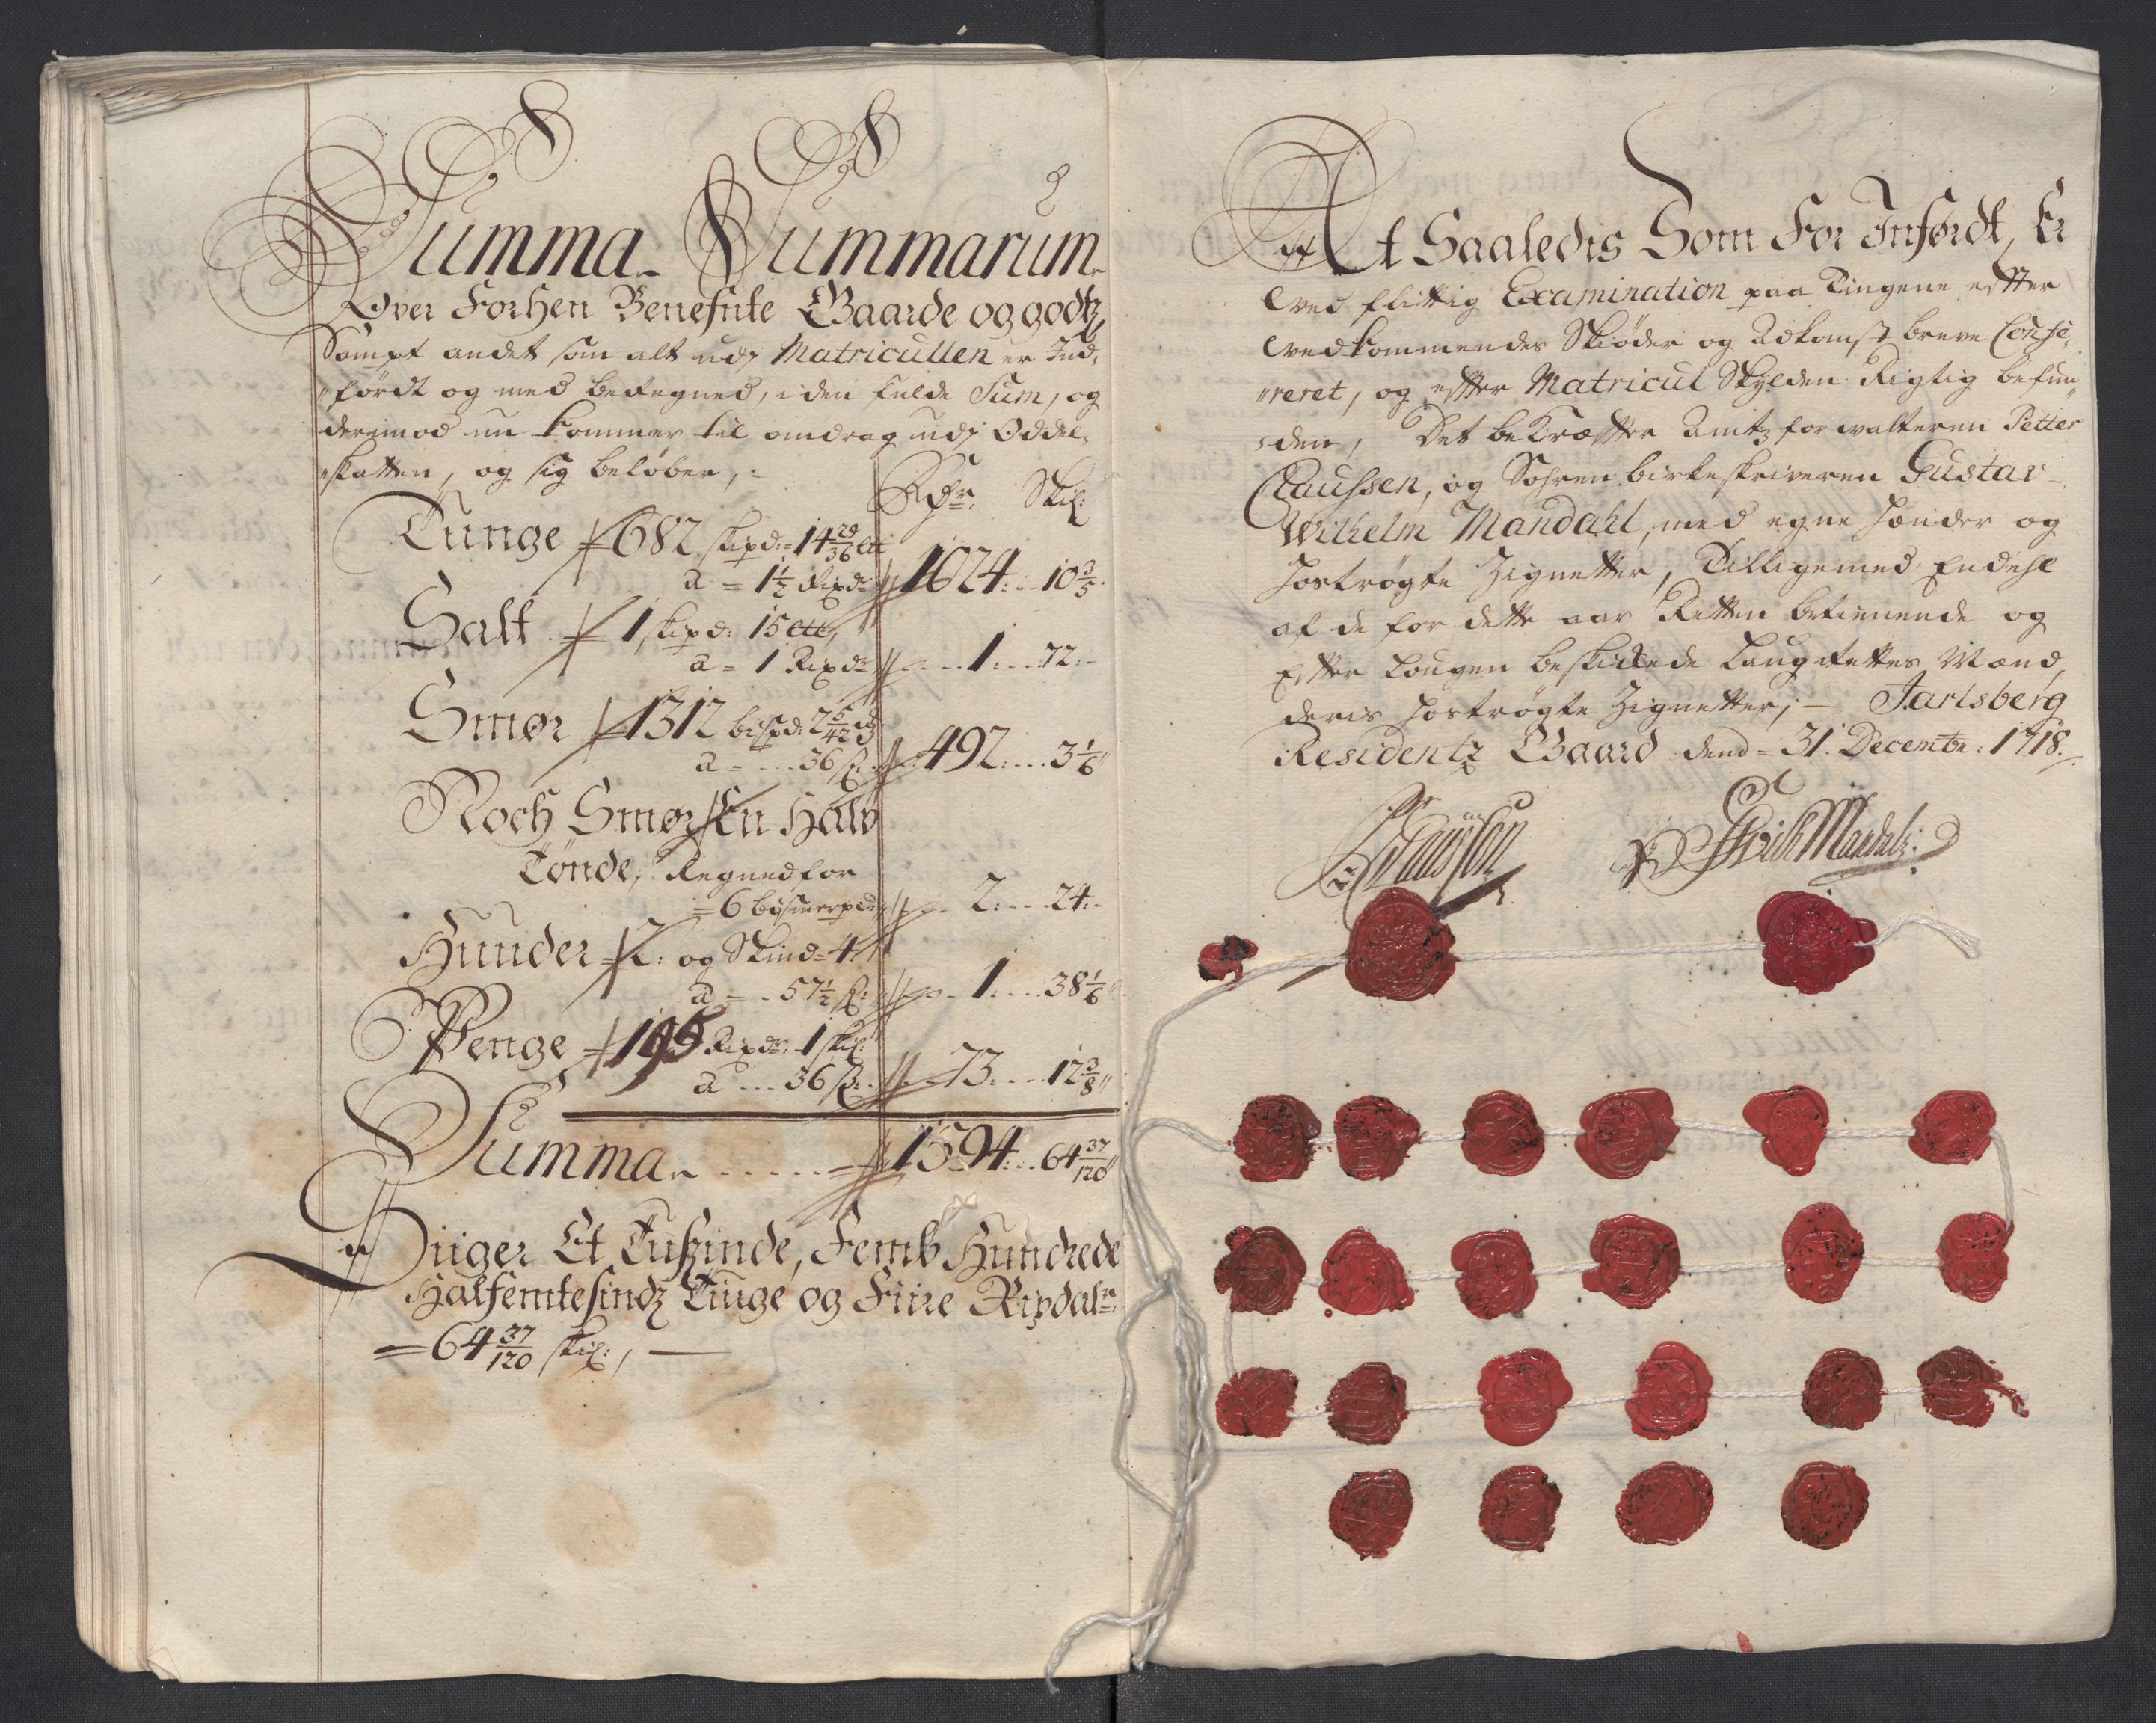 Summa Summarum
Over Forhen Benefnte Gaarde og godtz,
Sampt andet som alt udj Matricullen er Ind-
ført og med beregned, i den fulde Sum, og
derimod nu kommer til omdrag udj Oddel-
skatten, og sig beløber,:
Rdr: Skil:
Tunge 682 skipd: 14 29/36 ltt
a = 1 1/2 Rixdr 1024: 10 3/5
Salt 1 skipd: 15 ltt,
a = 1 Rixdr 1: 72:
Smør 1312 bispd: 2 5/42
a = 36 s: 492: 3 1/6
Noch Smør En Halv
Tønde, Regned for
= 6 bismerpd 2: 24:
Huuder 2: og Skind = 4:
a = 57 1/2 s: 1: 38 1/6
Penge 195 Rixdr: 1 skil:
a 36 s: 73: 12 3/8
Summa 1594: 64 37/120
Siiger Et Tuszinde, Femb Hundrede
Halfemtesindz Tiuge og Fiire Rixdalr:
= 64 37/120 skil:,
At Saaledis Som For Indført, Er
ved flittig Examination paa Tingene effter
vedkommendes Skiøder og Adkomst breve Confe-
reret, og effter Matricul Skylden Rigtig befun-
den, Det bekræffter Amtzforvalteren Petter
Claussen, og Sohrenbirkeskriveren Gustav
Wilhelm Mandahl, med egne hænder og
hostrøgte Zignetter, Tilligemed Endehl
af de for dette aar Retten betienende og
Effter Lougen beskikede Laugrettes Mænd,
deris hostrøgte Zignetter; Jarlsberg
Residentz Gaard dend = 31. Decembr: 1718.
PClaussen
GWilh Mandahl: